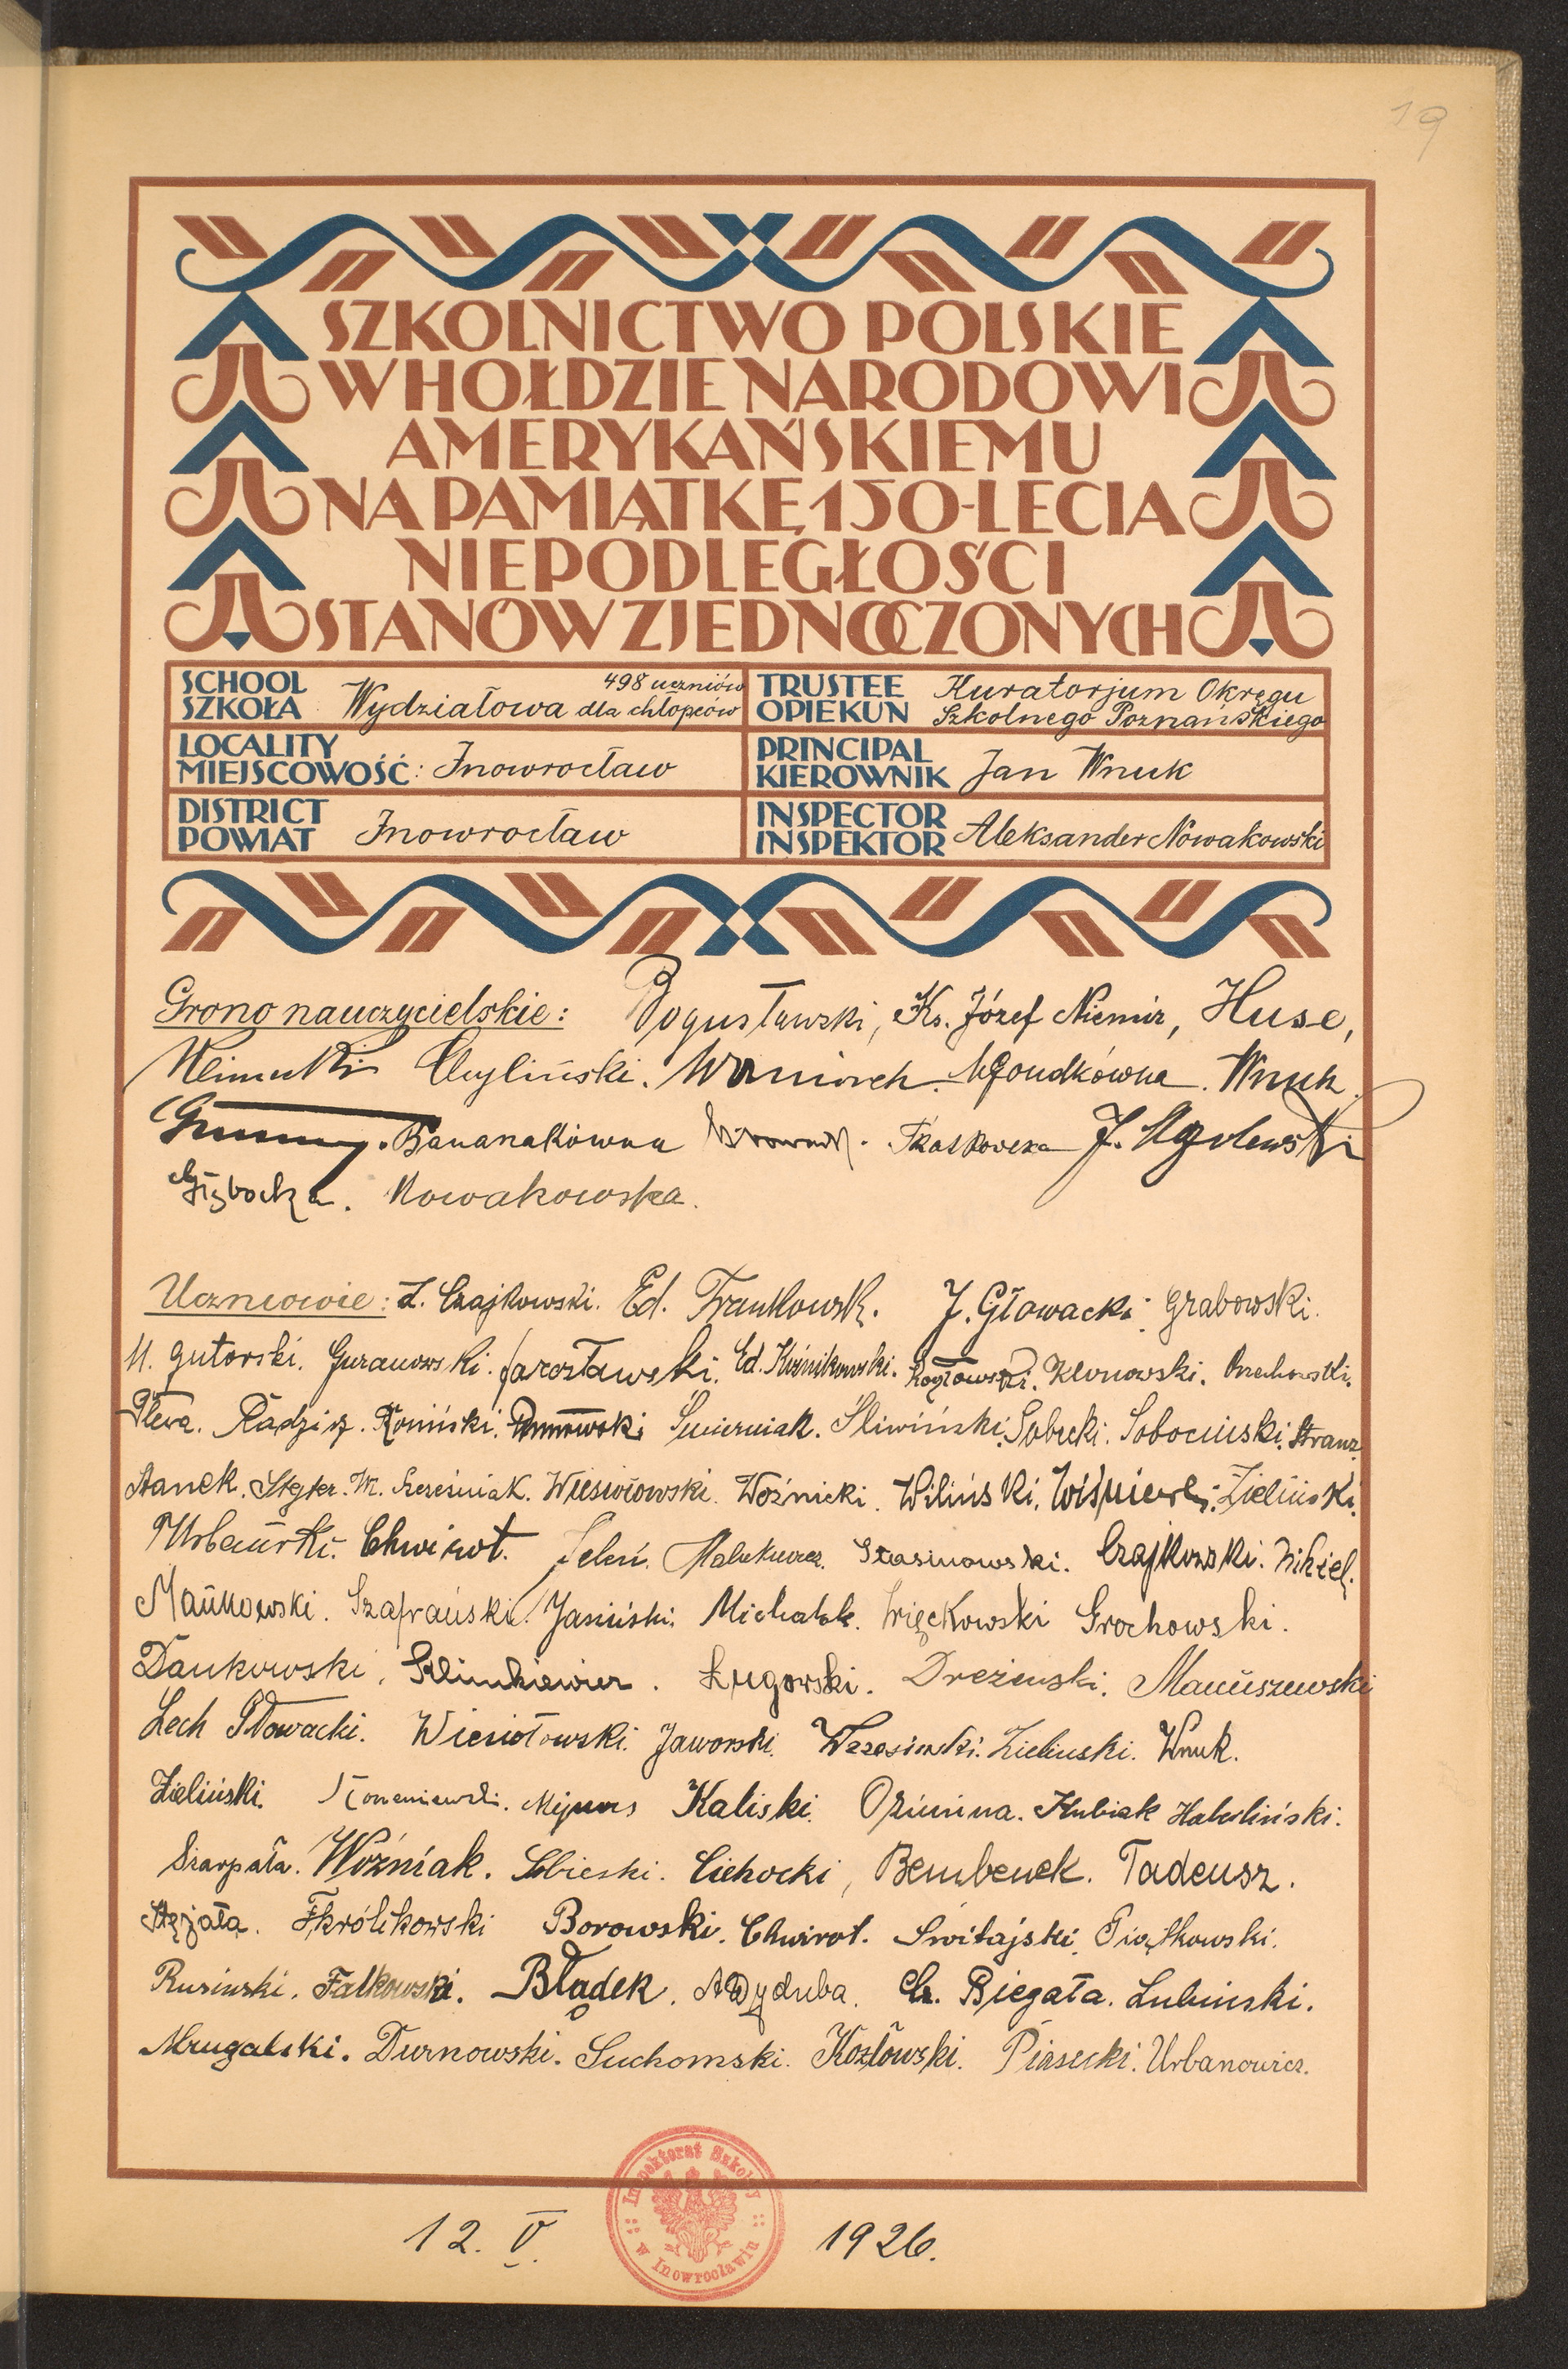 19
SZKOLNICTWO POLSKIE
W HOŁDZIE NARODOWI
AMERYKAŃSKIEMU
NA PAMIĄTKĘ 150-LECIA
NIEPODLEGŁOŚCI
STANÓW ZJEDNOCZONYCH
SCHOOL
SZKOŁA
498 uczniów
Wydziałowa dla chłopców
TRUSTEE
OPIEKUN
Kuratorjum Okręgu
Szkolnego Poznańskiego
LOCALITY
MIEJSCOWOŚĆ: Inowrocław
PRINCIPAL
KIEROWNIK Jan Wnuk
DISTRICT
POWIAT Inowrocław
INSPECTOR
INSPEKTOR Aleksander Nowakowski
Grono nauczycielskie: Bogusławski, Ks. Józef Niemir, Huse,
Chyliński. Wnuk.
Bananakówna
Głębocka. Nowakowska.
Uczniowie: Czajkowski. Ed. Frankowski. J. Głowacki. Grabowski.
M. Gutorski. Guranowski. Jarosławski. Ed. Koźnikowski. Kozłowski. Klonowski. Orzechowski.
Plewa. Radzisz. Roniński. Śmierniak. Śliwiński. Sobecki. Sobociński. Stranz.
Stanek. Szcześniak. Wiesiołowski. Woźnicki. Wiliński. Zieliński.
Urbański. Chwirot. Jeleń. Stasinowski. Czajkowski.
Mańkowski. Szafrański. Jasiński. Michalak. Więckowski Grochowski.
Dankowski. Klimkiewicz. Ługowski. Dreżewski. Matuszewski
Lech Głowacki. Wiesiołowski. Jaworski. Wrzesiński. Zieliński. Wnuk.
Zieliński. Kaliski. Ozimina. Kubiak Habeliński.
Szarpała. Woźniak. Sobieski. Cichocki, Bembenek. Tadeusz.
Stęjała. F Królikowski Borowski. Chwirot. Świtajski. Piątkowski.
Rusinski. Falkowski. Błądek. A Dyduba. Biegała. Lubinski.
Mrugalski. Durnowski. Suchomski. Kozłowski. Piasecki. Urbanowicz.
Inspektorat Szkolny
w Inowrocławiu
12. V. 1926.